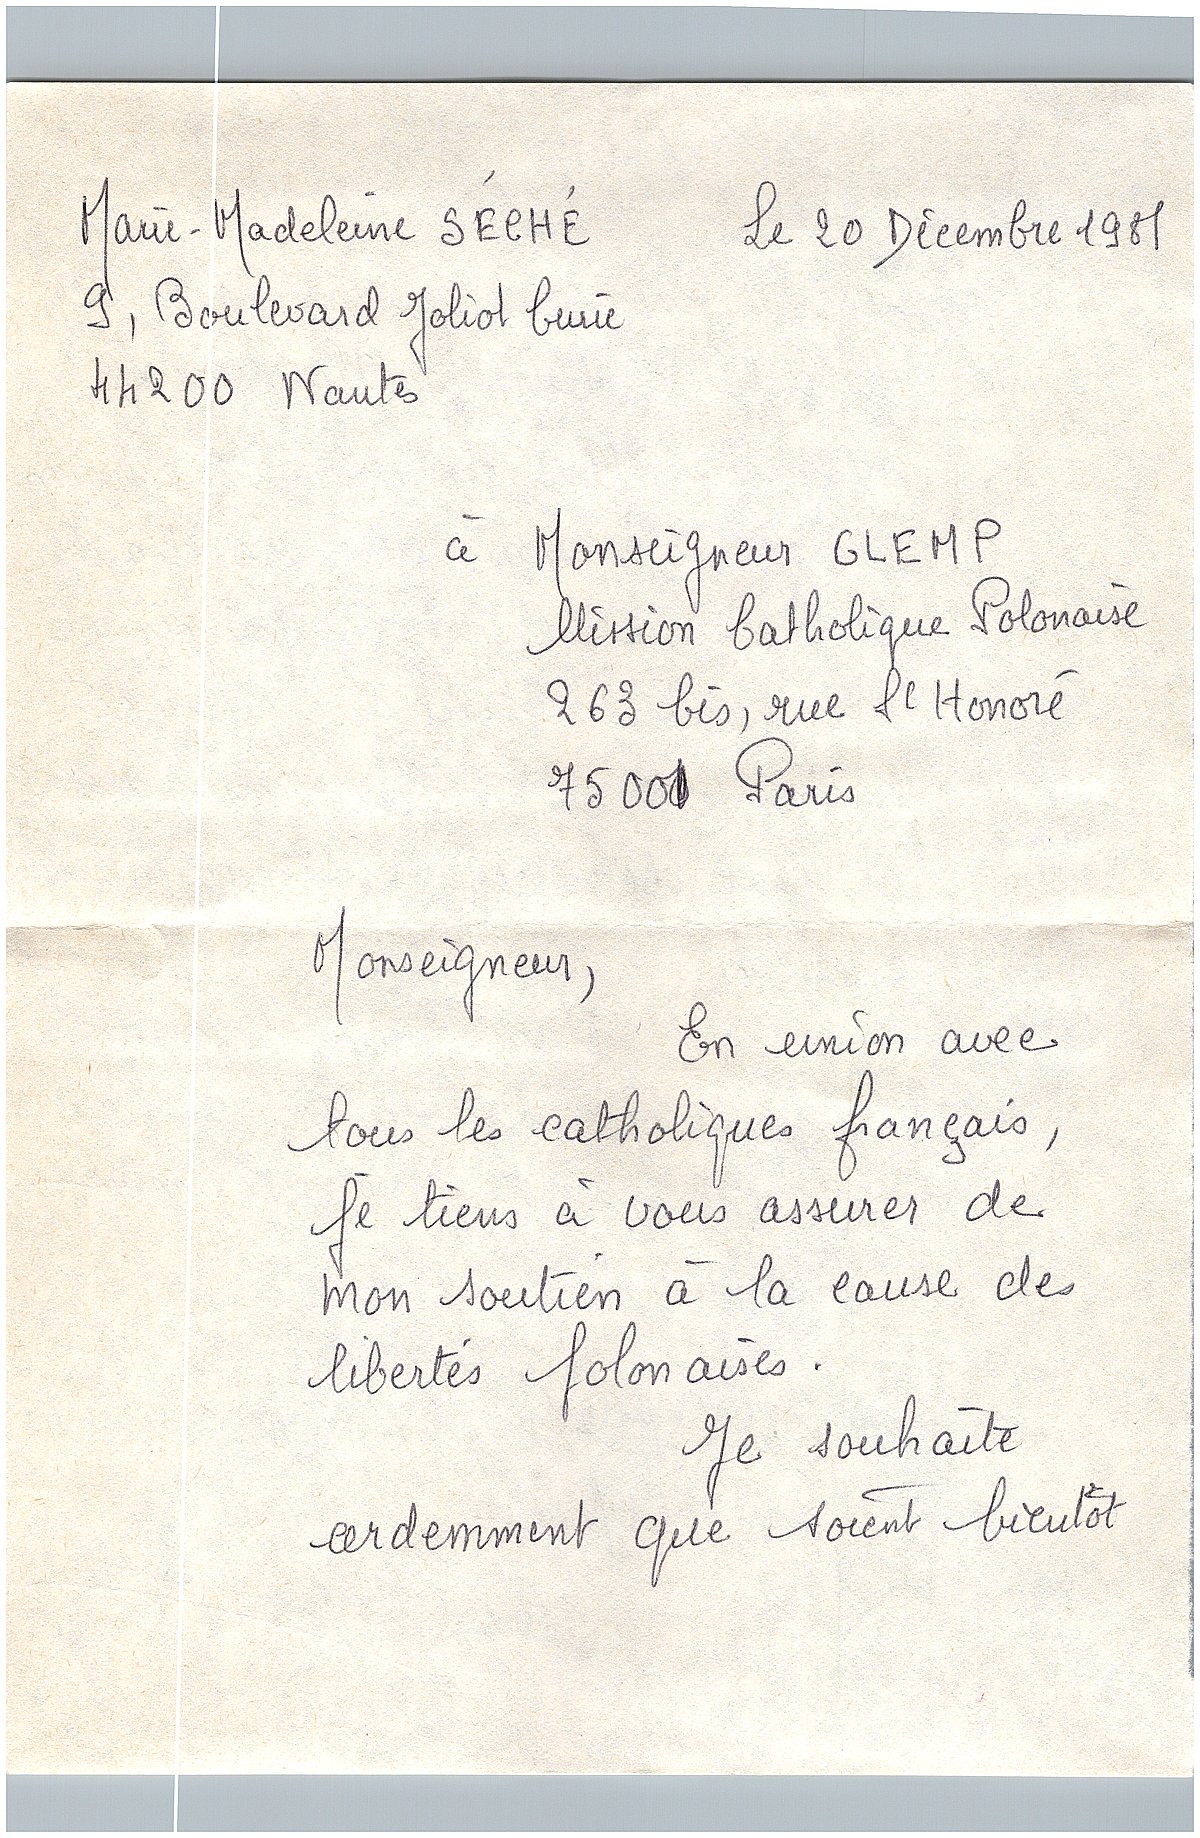 Marie-Madeleine SÉCHÉ
Le 20 Décembre 1981
9, Boulevard Joliot Curie
44200 Nantes
à Monseigneur GLEMP
Mission Catholique Polonaise
263 bis, rue St Honoré
75001 Paris
Monseigneur,
En union avec
tous les catholiques français,
je tiens à vous assurer de
mon soutien à la cause des
libertés polonaises.
Je souhaite
ardemment que soient bientôt